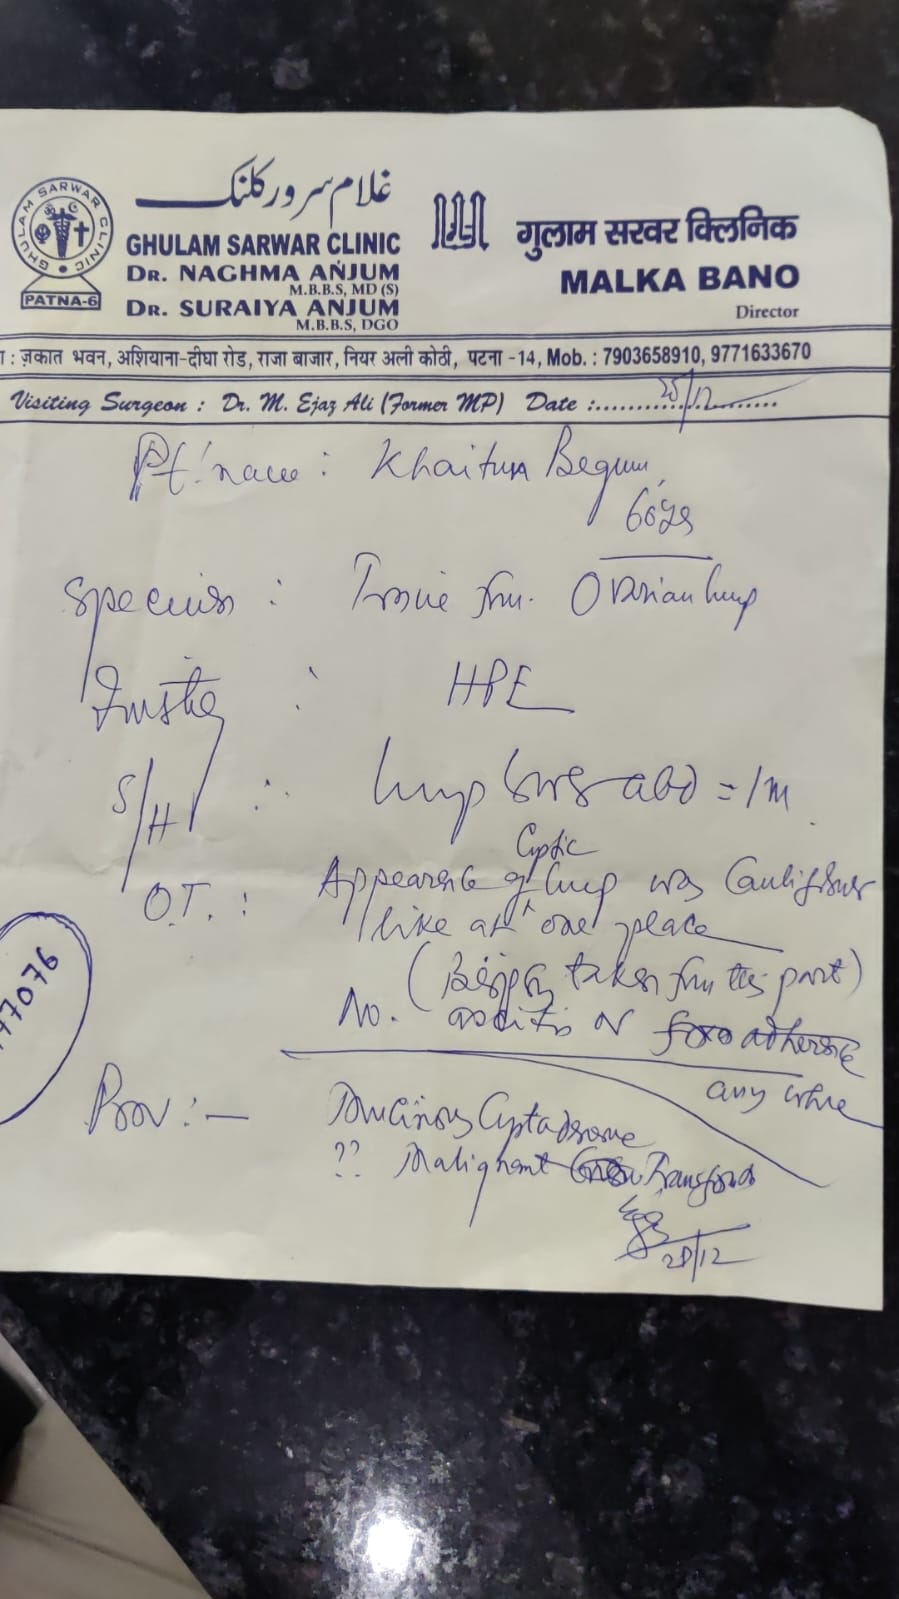 GHULAM SARWAR CLINIC
PATNA-6
غلام سرور کلنک
GHULAM SARWAR CLINIC
DR. NAGHMA ANJUM
M.B.B.S, MD (S)
DR. SURAIYA ANJUM
M.B.B.S, DGO
गुलाम सरवर क्लिनिक
MALKA BANO
Director
: ज़कात भवन, अशियाना-दीघा रोड, राजा बाजार, नियर अली कोठी, पटना -14, Mob. : 7903658910, 9771633670
Visiting Surgeon : Dr. M. Ejaz Ali (Former MP) Date :............/12............
Pt. name : Khaitun Begum
60 ys
: Ovarian lump
: HPE
S/H : lump abd = 1m
Cystic
O.T. : Appearance of lump was Cauliflower
like at one place
(Biopsy taken from this part)
No. ascitis or adherence
any where
77076
Prov :— Mucinous Cystadenoma
?? Malignant
28/12